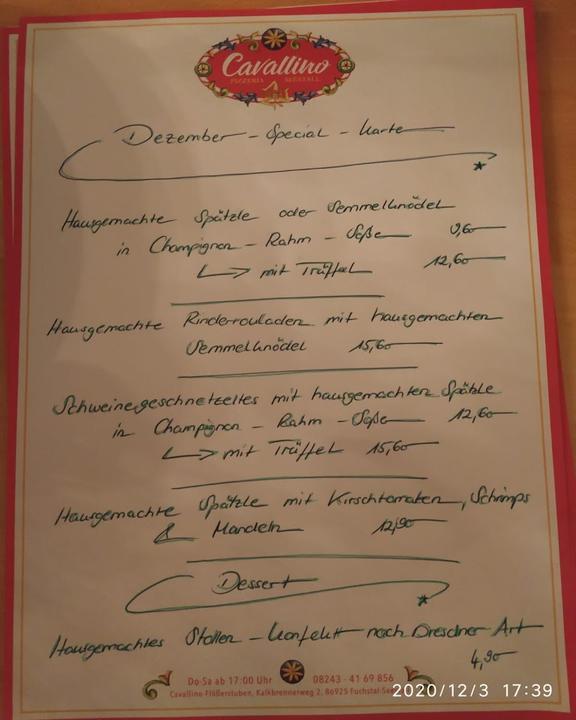 Cavallino
PIZZERIA SEESTALL
Dezember - Special - Karte
Hausgemachte Spätzle oder Semmelknödel
in Champignon - Rahm - Soße 9,60
→ mit Trüffel 12,60
Hausgemachte Rinderrouladen mit hausgemachten
Semmelknödel 15,60
Schweinegeschnetzeltes mit hausgemachten Spätzle
in Champignon - Rahm - Soße 12,60
→ mit Trüffel 15,60
Hausgemachte Spätzle mit Kirschtomaten, Schrimps
& Mandeln 12,90
Dessert
Hausgemachtes Stollen - Konfekt nach Dresdner Art
4,90
Do-Sa ab 17:00 Uhr 08243 - 41 69 856
Cavallino-Flößerstuben, Kalkbrennerweg 2, 86925 Fuchstal-See
2020/12/3 17:39